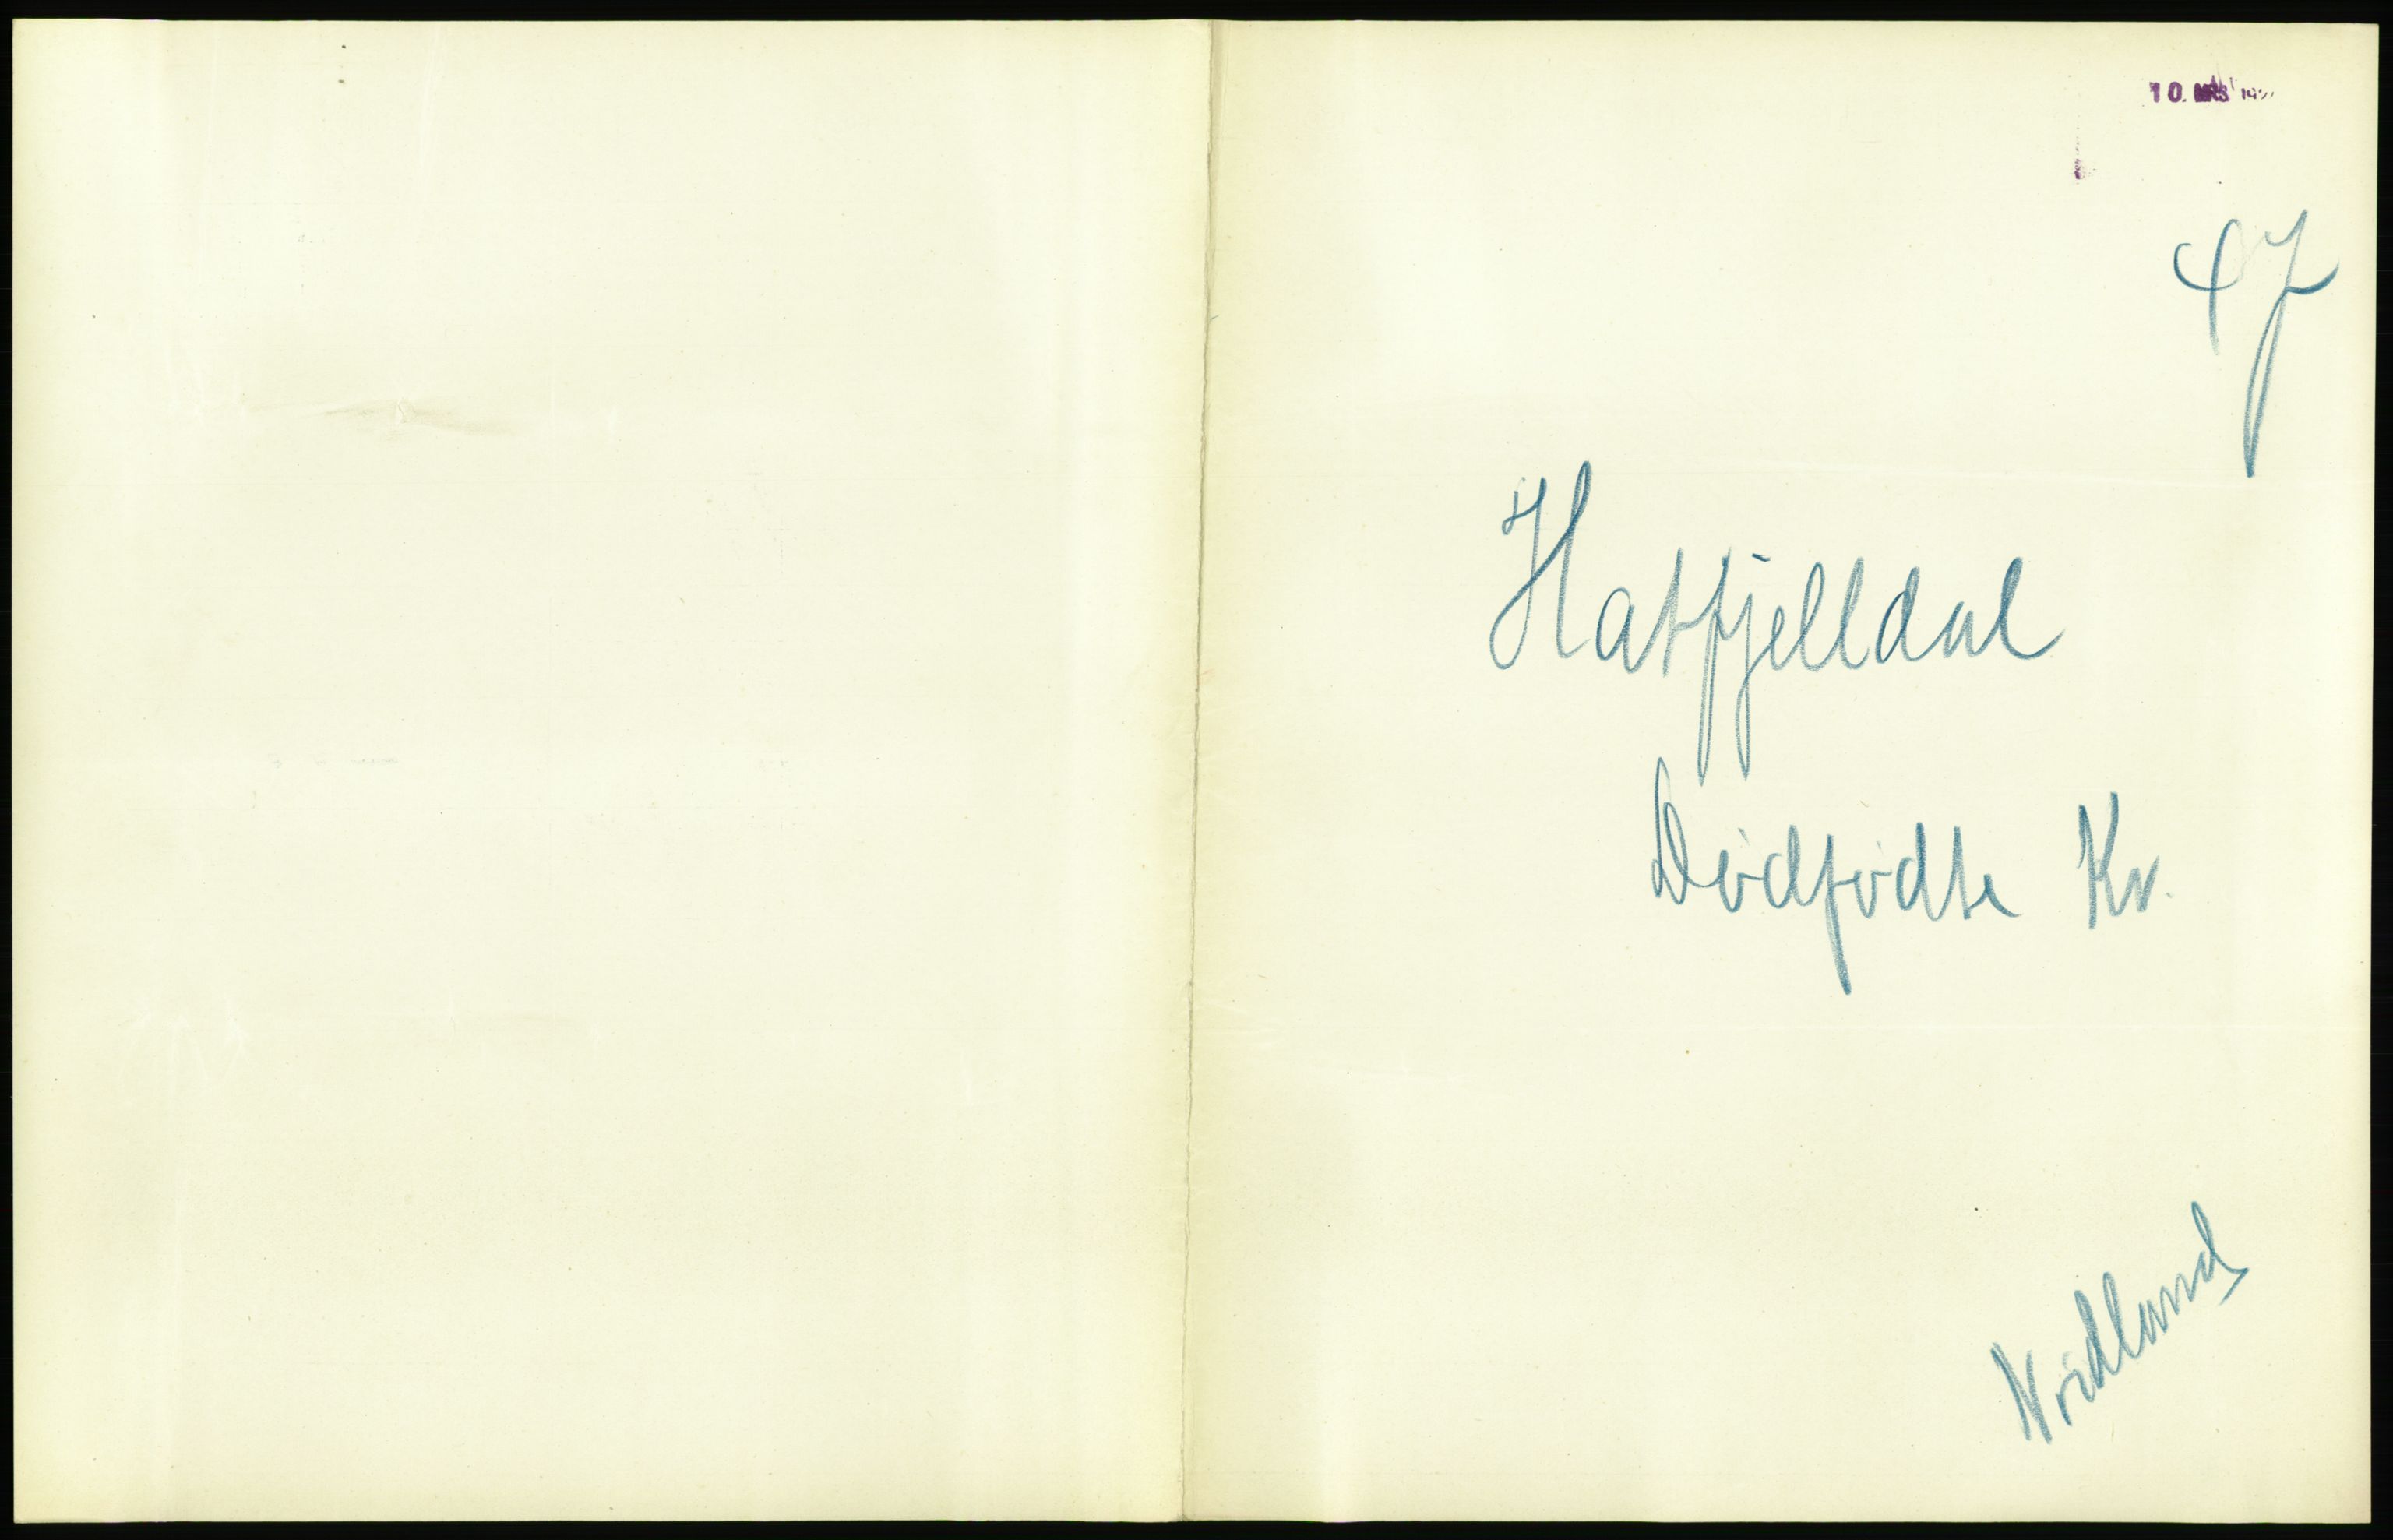 10. MRS
47
Hatfjelldal
Dødfødte Kv.
Nordland